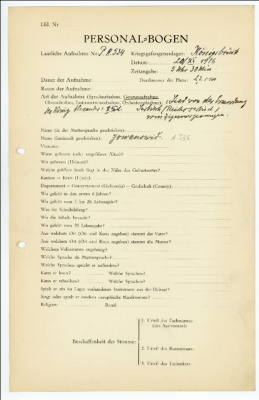 Lfd. Nr.
PERSONAL-BOGEN
Lautliche Aufnahme Nr.: P.K. 534
Kriegsgefangenenlager: Königsbrück
Datum: 20/XI 1916
Zeitangabe: 5 Uhr 30 Min
Dauer der Aufnahme:
Durchmesser der Platte: 27 cm
Raum der Aufnahme:
Art der Aufnahme (Sprechaufnahme, Gesangsaufnahme,
Choraufnahme, Instrumentenaufnahme, Orchesteraufnahme): Lied von der Ermordung
des König
Name (in der Muttersprache geschrieben):
Name (lateinisch geschrieben): Jowanowić
Vorname:
Wann geboren (oder ungefähres Alter)?
Wo geboren (Heimat)?
Welche größere Stadt liegt in der Nähe des Geburtsortes?
Kanton — Kreis (Ujedz):
Departement — Gouvernement (Gubernija) — Grafschaft (County):
Wo gelebt in den ersten 6 Jahren?
Wo gelebt vom 7. bis 20. Lebensjahr?
Was für Schulbildung?
Wo die Schule besucht?
Wo gelebt vom 20. Lebensjahr?
Aus welchem Ort (Ort und Kreis angeben) stammt der Vater?
Aus welchem Ort (Ort und Kreis angeben) stammt die Mutter?
Welchem Volksstamm angehörig?
Welche Sprache als Muttersprache?
Welche Sprachen spricht er außerdem?
Kann er lesen? Welche Sprachen?
Kann er schreiben? Welche Sprachen?
Spielt er ein im Lager vorhandenes Instrument aus der Heimat?
Singt oder spielt er modern europäische Musikweisen?
Religion: Beruf:
1. Urteil des Fachmannes
(des Assistenten):
Beschaffenheit der Stimme:
2. Urteil des Kommissars:
3. Urteil des Technikers: